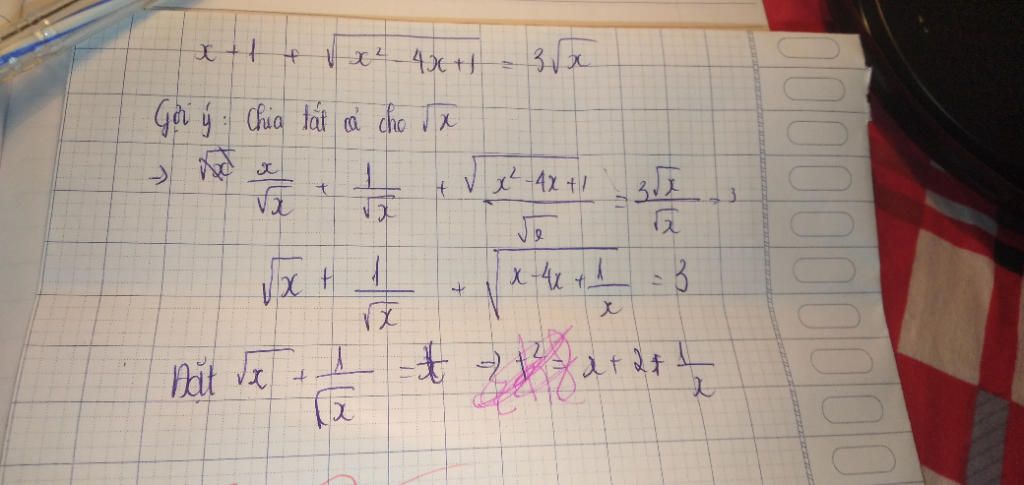 x + 1 + √(x² - 4x + 1) = 3√x
Gợi ý: Chia tất cả cho √x
→ x/√x + 1/√x + √(x² - 4x + 1)/√x = 3√x/√x = 3
√x + 1/√x + √(x - 4x + 1/x) = 3
Đặt √x + 1/√x = t ⇒ t² = x + 2 + 1/x